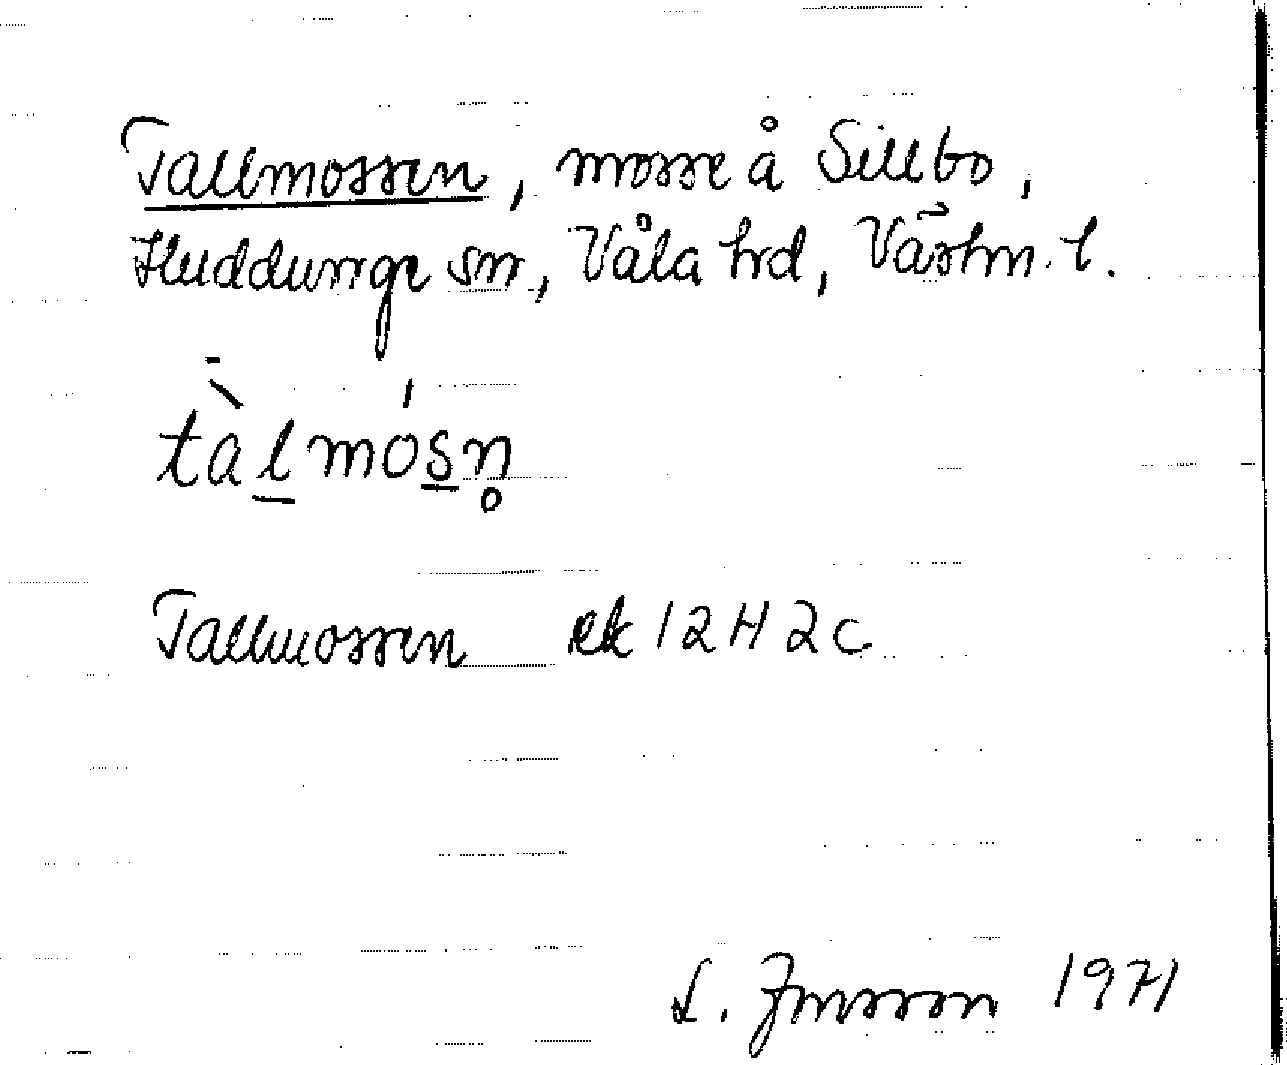 Tallmossen, mosse å Sillbo,
Huddunge sn, Våla hd, Västm. l.
tàl̲mós̲n̥
Tallmossen ek 12H2c
L. Jonsson 1971